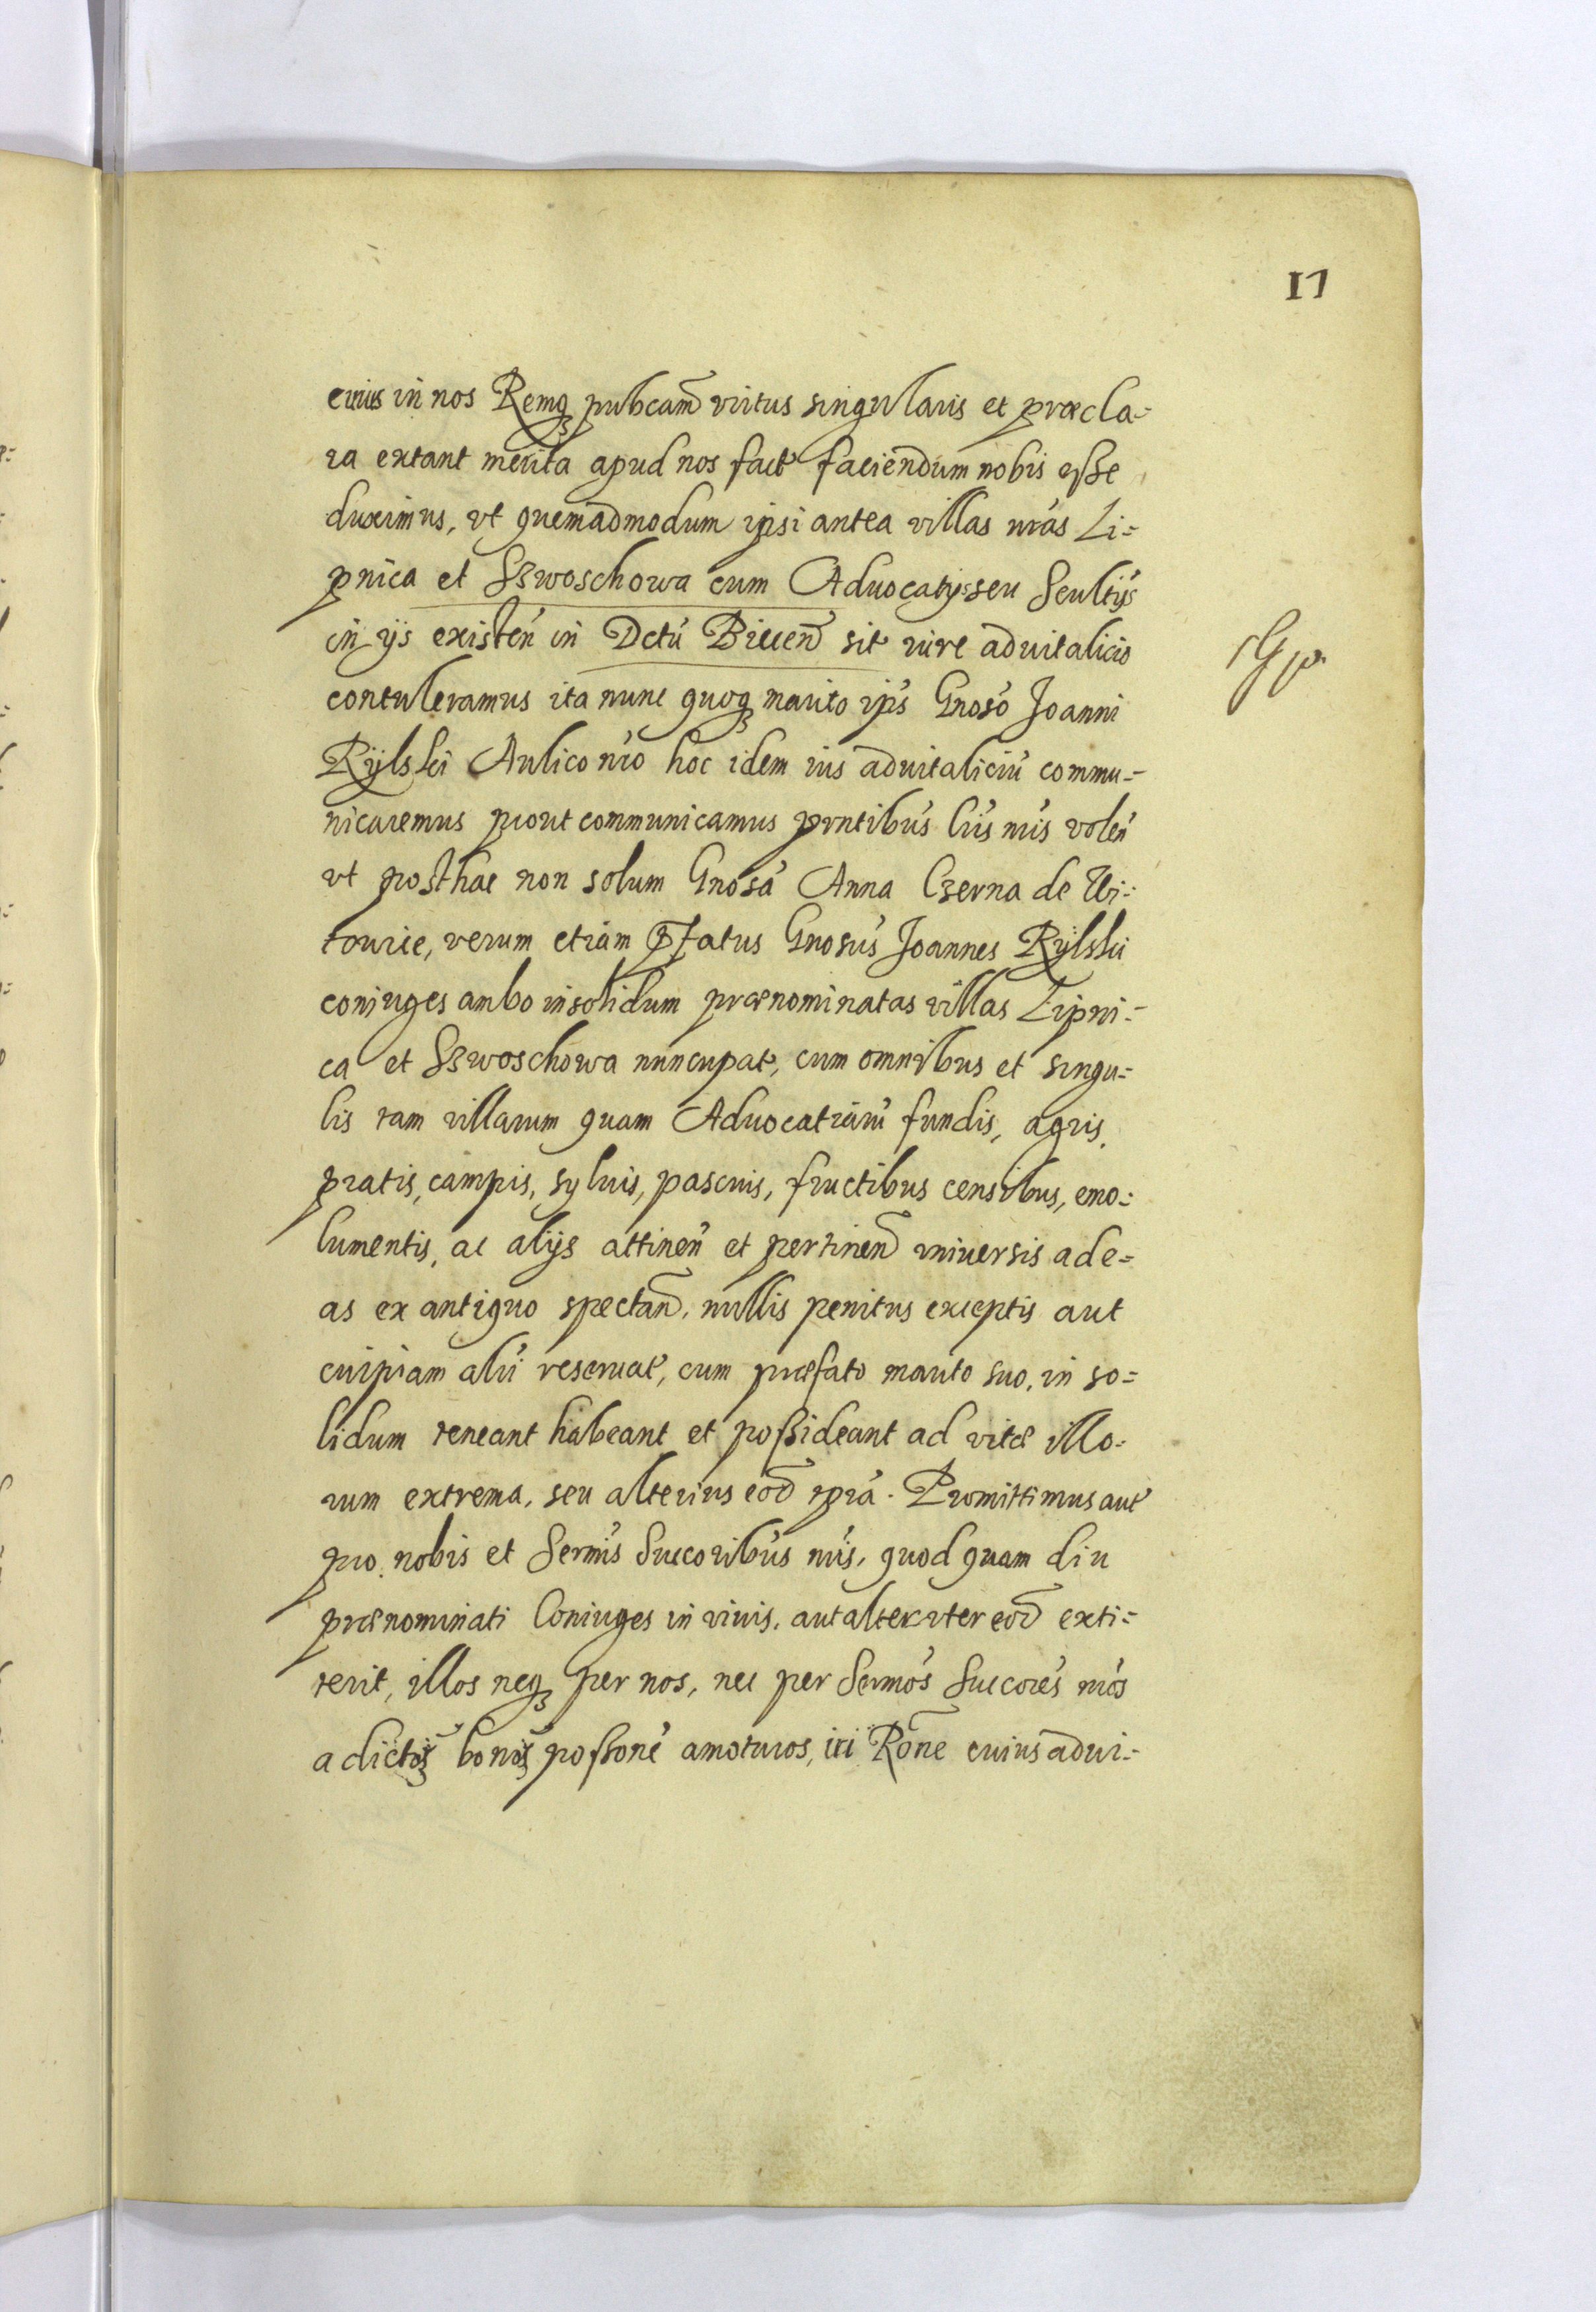 17
cuius in nos Remq pubcam virtus singularis et præcla-
ra extant merita apud nos fact faciendum nobis esse
duximus, vt quemadmodum ipsi antea villas nras Li-
pnica et Szwoschowa cum Aduocatijs seu Scultijs
in ijs existen in Dctu Biecen sit iure aduitalicio
contuleramus ita nunc quoq marito ips Gnoso Joanni
Rÿlski Aulico nro hoc idem ius aduitaliciu commu-
nicaremus prout communicamus prntibus lris nris volen
vt posthac non solum Gnosa Anna Czerna de Wi-
towice, verum etiam Pfatus Gnosus Joannes Rÿlski
coniuges ambo insolidum prænominatas villas Lipni-
ca et Szwoschowa nuncupat, cum omnibus et singu-
lis tam villarum quam Aduocatiaru fundis, agris,
pratis, campis, syluis, pascuis, fructibus censibus, emo-
lumentis, ac alijs attinen et pertinen vniuersis ad e-
as ex antiquo spectan, nullis penitus exceptis aut
cuipiam alij reseruat, cum præfato marito suo, in so-
lidum teneant habeant et possideant ad vitæ illo-
rum extrema, seu alterius eod tpra. Promittimus aut
pro nobis et Sermis Succoribus nris, quod quam diu
prænominati Coniuges in viuis, aut alter vter eod exti-
terit, illos neq per nos, nec per Sermos Succores nros
a dictoꝝ bonoꝝ possone amoturos, iri Rone cuius adui-